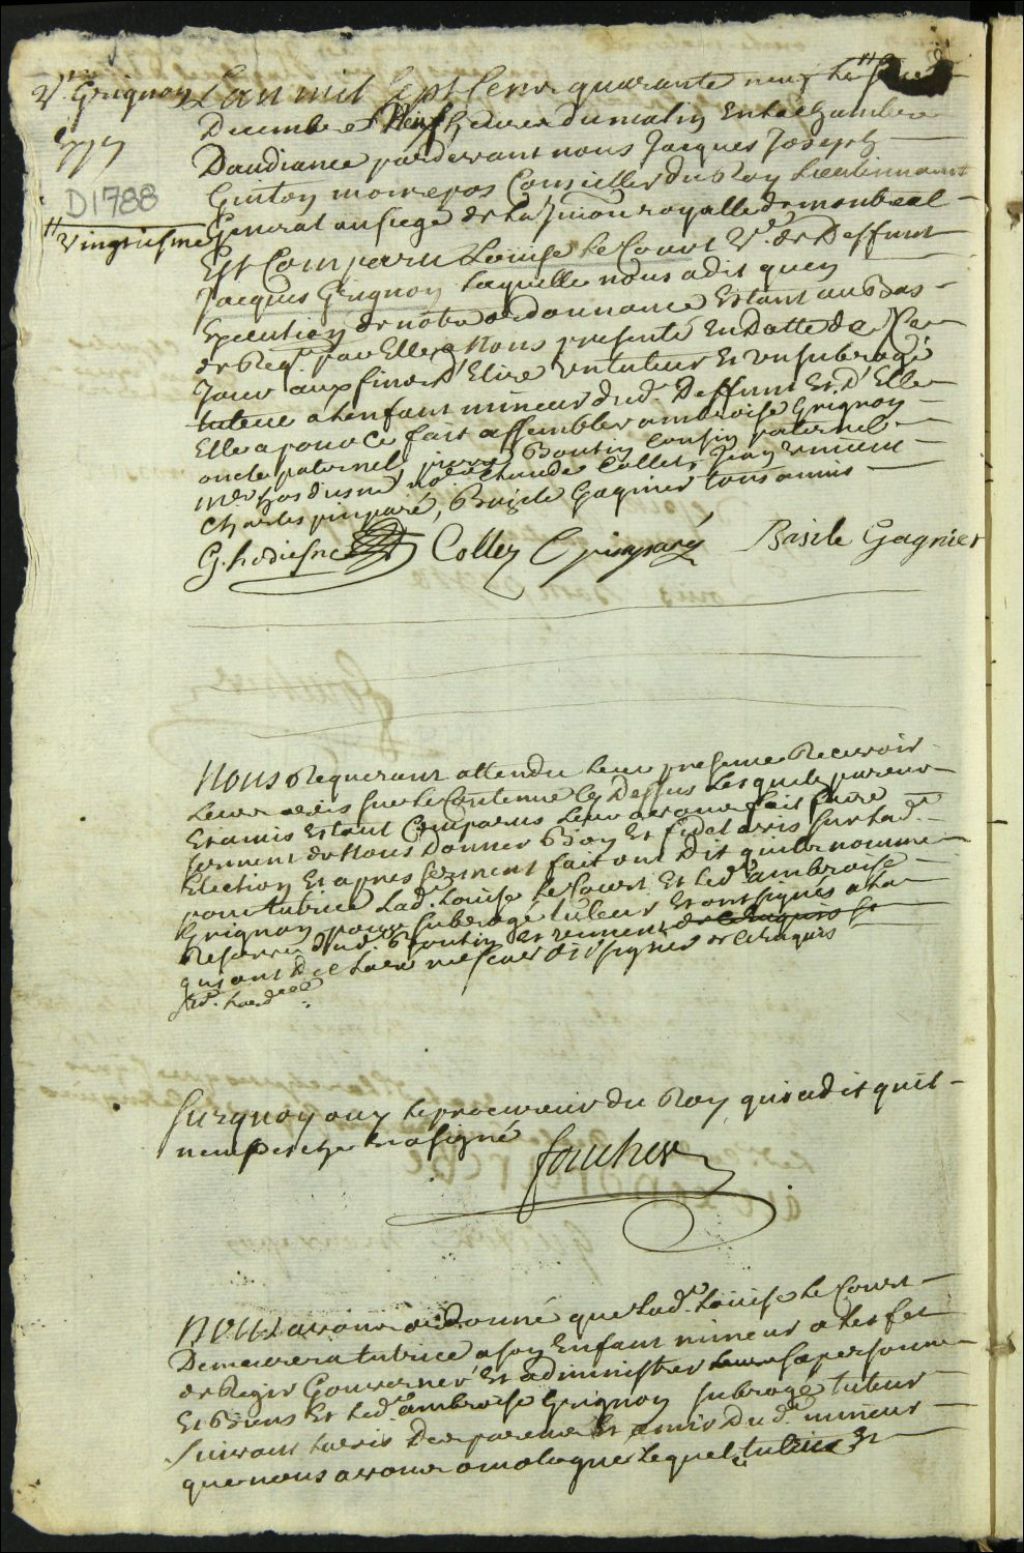 Ve. Grignon
D1788
" vingtriesme
L'an mil sept Cent quarante neuf le "
Decembre Neuf heures du matin En la chambre
Daudiance pardevant nous Jacques Joseph
Guiton monrepos Conseiller du Roy Lieutennant
General au siege de la Jurion royalle de monreal
Est Comparu Louise le Court Ve. de Deffunt
Jacques Grignon Laquelle nous a dit quen
Execution de notre ordonnance Estant au Bas
de Reqte. par Elle a Nous presenté En Datte de Ce
Jour aux fins d'Elire un tuteur Et un subrogé
tuteur a lenfant mineur dud. Deffunt Et D'Elle
Elle a pour Ce fait assembler ambroise Grignon
oncle paternel, pierre Boutin Cousin paternel
Mre. hodiesne nore. Claude Collet, Jean
Charles pinparé, Bazile Gagnier tous amis
G. hodiesne Collet C pinparé Basile Gagnier
Nous Requerant attendu leur presence Recevoir
Leur avis sur le Contenue Cy Dessus Lesquels parens
Et amis Estant Comparus Leur avons fait faire
serment de Nous Donner Bon Et fidel avis sur lad.
Election Et apres serment fait ont Dit quils nomme
pour tutrice Lad. Louise le Court Et led. ambroise
Grignon pour subrogé tuteur Et ont signés a la
Reserve dud. Boutin et de Ce Requis
qui ont Declaré ne scavoir signer de Ce Requis
Surquoy ouy le procureur du Roy qui a dit quil
nempesche Et a signé
foucher
Nous avons ordonné que Lad. Louise le Court
Demeurera tutrice a son Enfant mineur a Leffet
de Regir Gouverner Et administrer sa personne
Et Biens Et led. ambroise Grignon subrogé tuteur
suivant Lavis Des parens Et amis Dud. mineur
que nous avons omologué Lequel tutrice Et